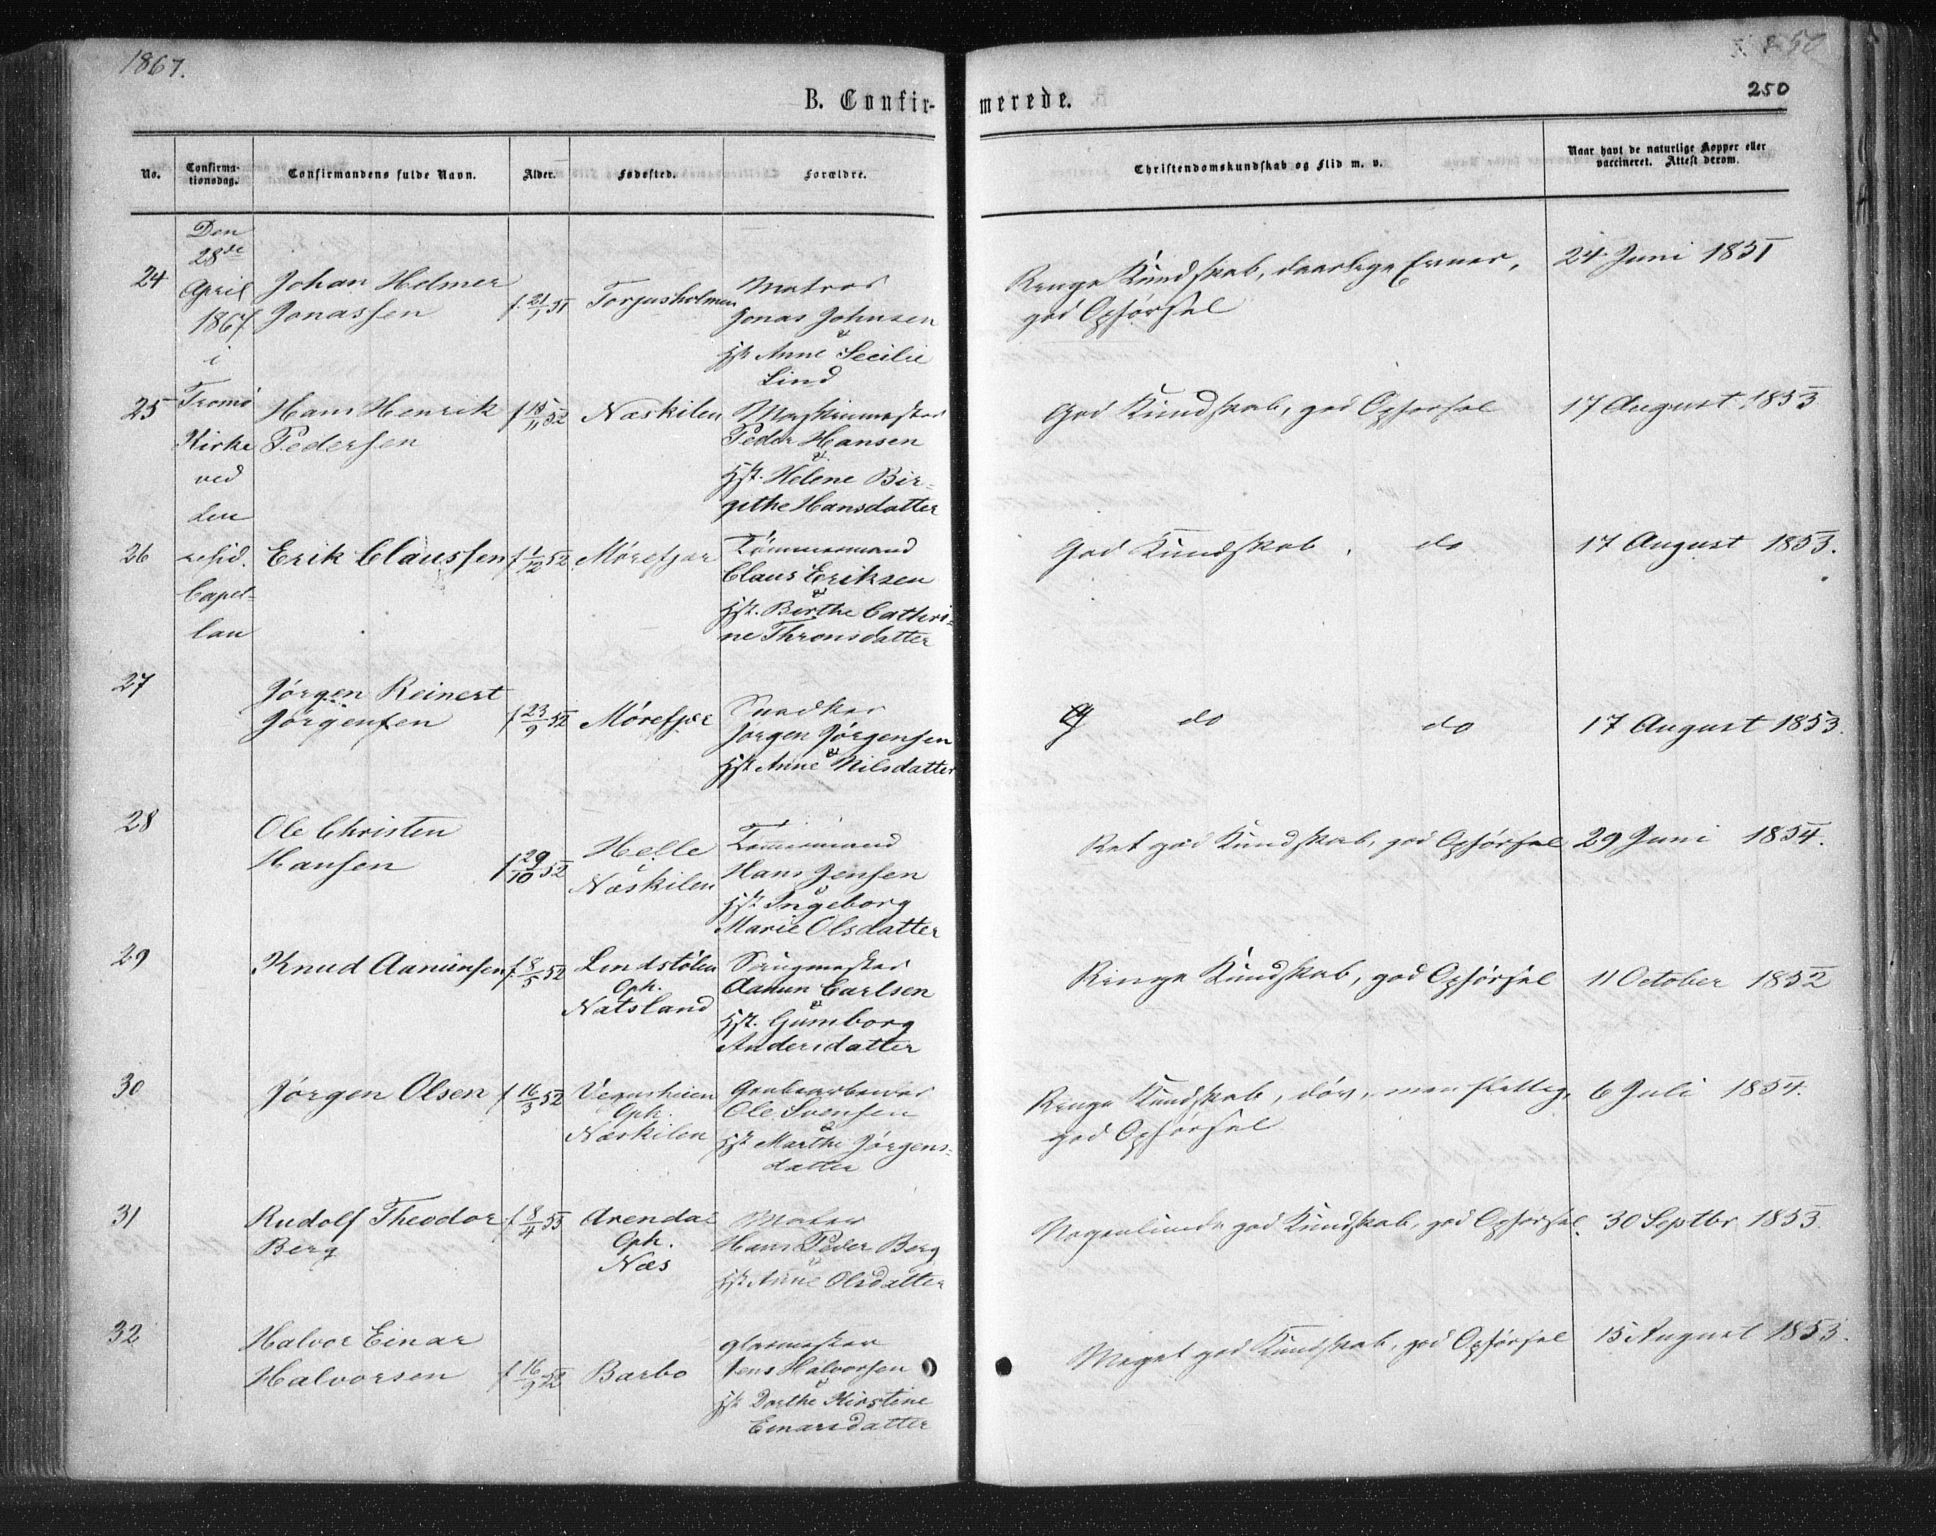 1867.
250
B. Confir-
merede.
250
No.
Confirma-
tionsdag.
Confirmandens fulde Navn.
Alder.
Fødested.
Forældre.
Christendomskundskab og Flid m. v.
Naar havt de naturlige Kopper eller
vaccineret. Attest derom.
Den
28de
April
1867.
i
Tromø
Kirke
ved
den
resid.
Capel-
lan
24
Johan Helmer
Jonassen
f. 21/1 51
Torjusholmen
Matros
Jonas Johnsen
&
Hst. Anne Secilie
Lind
Ringe Kundskab, daarlige Evner,
god Opførsel
24 Juni 1851
25
Hans Henrik
Pedersen
f 15/11 52
Næskilen
Maskinmester
Peder Hansen
&
Hst. Helene Bir-
githe Hansdatter
God Kundskab, god Opførsel
17 August 1853
26
Erik Claussen
f 1/12 52
Mørefjær
Tømmermand
Claus Eriksen
&
Hst. Berthe Cathri-
ne Thronsdatter
God Kundskab, do
17 August 1853.
27
Jørgen Reinert
Jørgensen
f 23/9 52
Mørefjær
Snedker
Jørgen Jørgensen
&
Hst. Anne Nilsdatter
do do
17 August 1853.
28
Ole Christen
Hansen
f 29/10 52
Helle
Næskilen
Tømmermand
Hans Jensen
&
Hst. Ingeborg
Marie Olsdatter
Ret god Kundskab, god Opførsel
29 Juni 1854.
29
Knud Aanunsen
f. 8/5 52
Lindstølen
Oph.
Natsland
Saugmester
Aanun Carlsen
&
Hst. Gumborg
Andersdatter
Ringe Kundskab, god Opførsel
11 October 1852
30
Jørgen Olsen
f 16/3 52
Vegusheien
Oph.
Næskilen
Grubearbeider
Ole Svensen
&
Hst. Marthe Jørgens-
datter
Ringe Kundskab, døv, men flittig,
god Opførsel
6 Juli 1854.
31
Rudolf Theodor
Berg
f. 8/4 53
Arendal
Oph.
Næs
Maler
Hans Peder Berg
&
Hst. Anne Olsdatter
Nogenlunde god Kundskab, god Opførsel.
30 Septbr 1853.
32
Halvor Einar
Halvorsen
f 16/9 52
Barbo
Glarmester
Jens Halvorsen
&
Hst. Dorthe Kirstine
Einarsdatter
Meget god Kundskab, god Opførsel
15 August 1853.